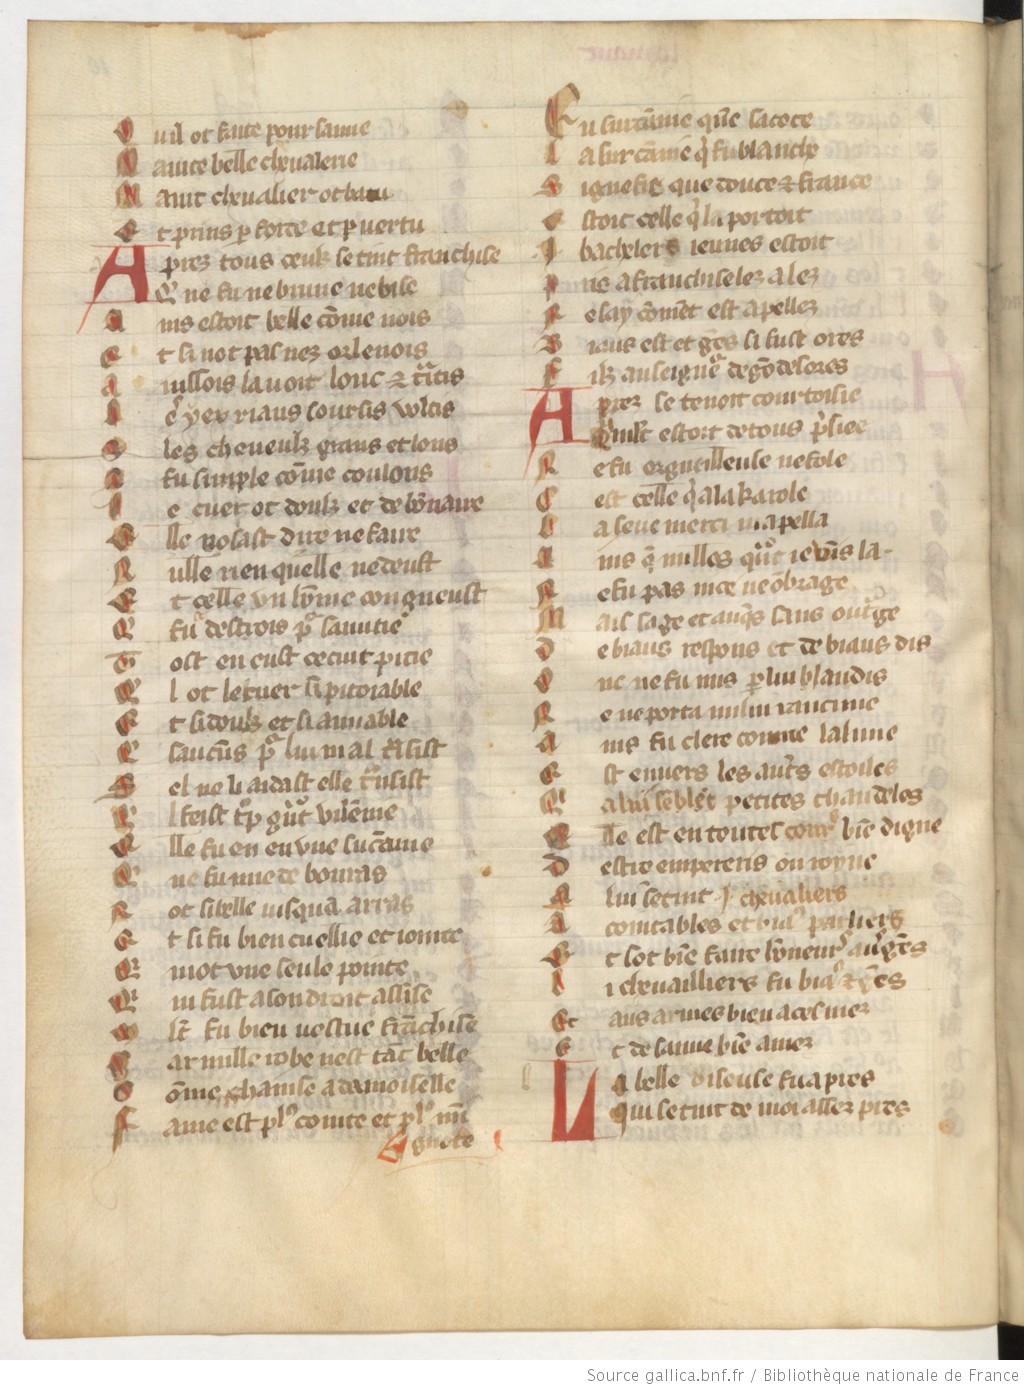 Quil ot faite pour samie
Mainte belle cheualerie
Maint chevalier ot batu
Et prins ꝑ force et ꝑ vertu
Aprez tous ceulz se tint franchise
Q̄ ne fu ne brune ne bise
Ains estoit belle cōme nois
Et si not pas nez orlenois
Ainssois lauoit lonc & t̾itis
Ieᵉx riaus sourcis voltis
les cheveulz graus et lons
fu simple cōme coulons
le cuer ot doulz et de bōnaire
Elle nosast dire ne faire
Nulle rien quelle ne deust
Et celle vn hōme congneust
fu destrois pͬ samitie
Tost en eust ce cuit pitie
Ql ot le cuer si pitoiable
Et si doulz et si amiable
Q̄ saucūs pͬ lui mal traisist
Sel ne li aidast elle crainsist
Ql feist trop gr̄t vilēnie
Elle fu en en vne surcanie
Que fu mie de bouras
Not si belle iusqua arras
Et si fu bien cuellie et iointe
Quil not vne seule pointe
Qui fust a son droit assise
fu bien vestue franchise
Car nulle robe nest tāt belle
Cōme chanise a damoiselle
Fame est pl᷒ cointe et pl᷒ mi
gnote
En surcanie que sa cote
La surcanie qͥ fu blanche
Signefie que douce & france
Estoit celle qͥ la portoit
I bachelers ieunes estoit
Pris a franchise lez a lez
Ne say cōmēt est apellez
Biaus est et gēs si fust ores
Filz au seignͬ de gōdesores
Aprez se tenoit courtoisie
Q̄ mlt estoit de tous prisiee
Ne fu orgueilleuse ne fole
Cest celle qͥ a la karole
La seue merci mapella
Ains q̄ nulles qͥt ie vīs la-
Ne fu pas nice ne ōbrage
Mais sage et auq̄s sans outrage
De biaus respons et de biaus dis
Onc ne fu nus ꝑ lui blandis
Ne ne porta nului rancune
Ains fu clere comme la lune
Est envers les autres estoiles
Q̄ a lui sēblēt petites chandeles
Elle est en toutes cours biē digne
Destre empereris ou royne
A lui se tint .I. chevaliers
Acointables et biau parliers
Et sot biē faire hōneur a autres gēs
Li chevailliers fu biaus & gēs
Et aus armes bien acesmez
Et de samie biē amez
La belle oiseuse fu apres
Qui se tint de moi assez pres